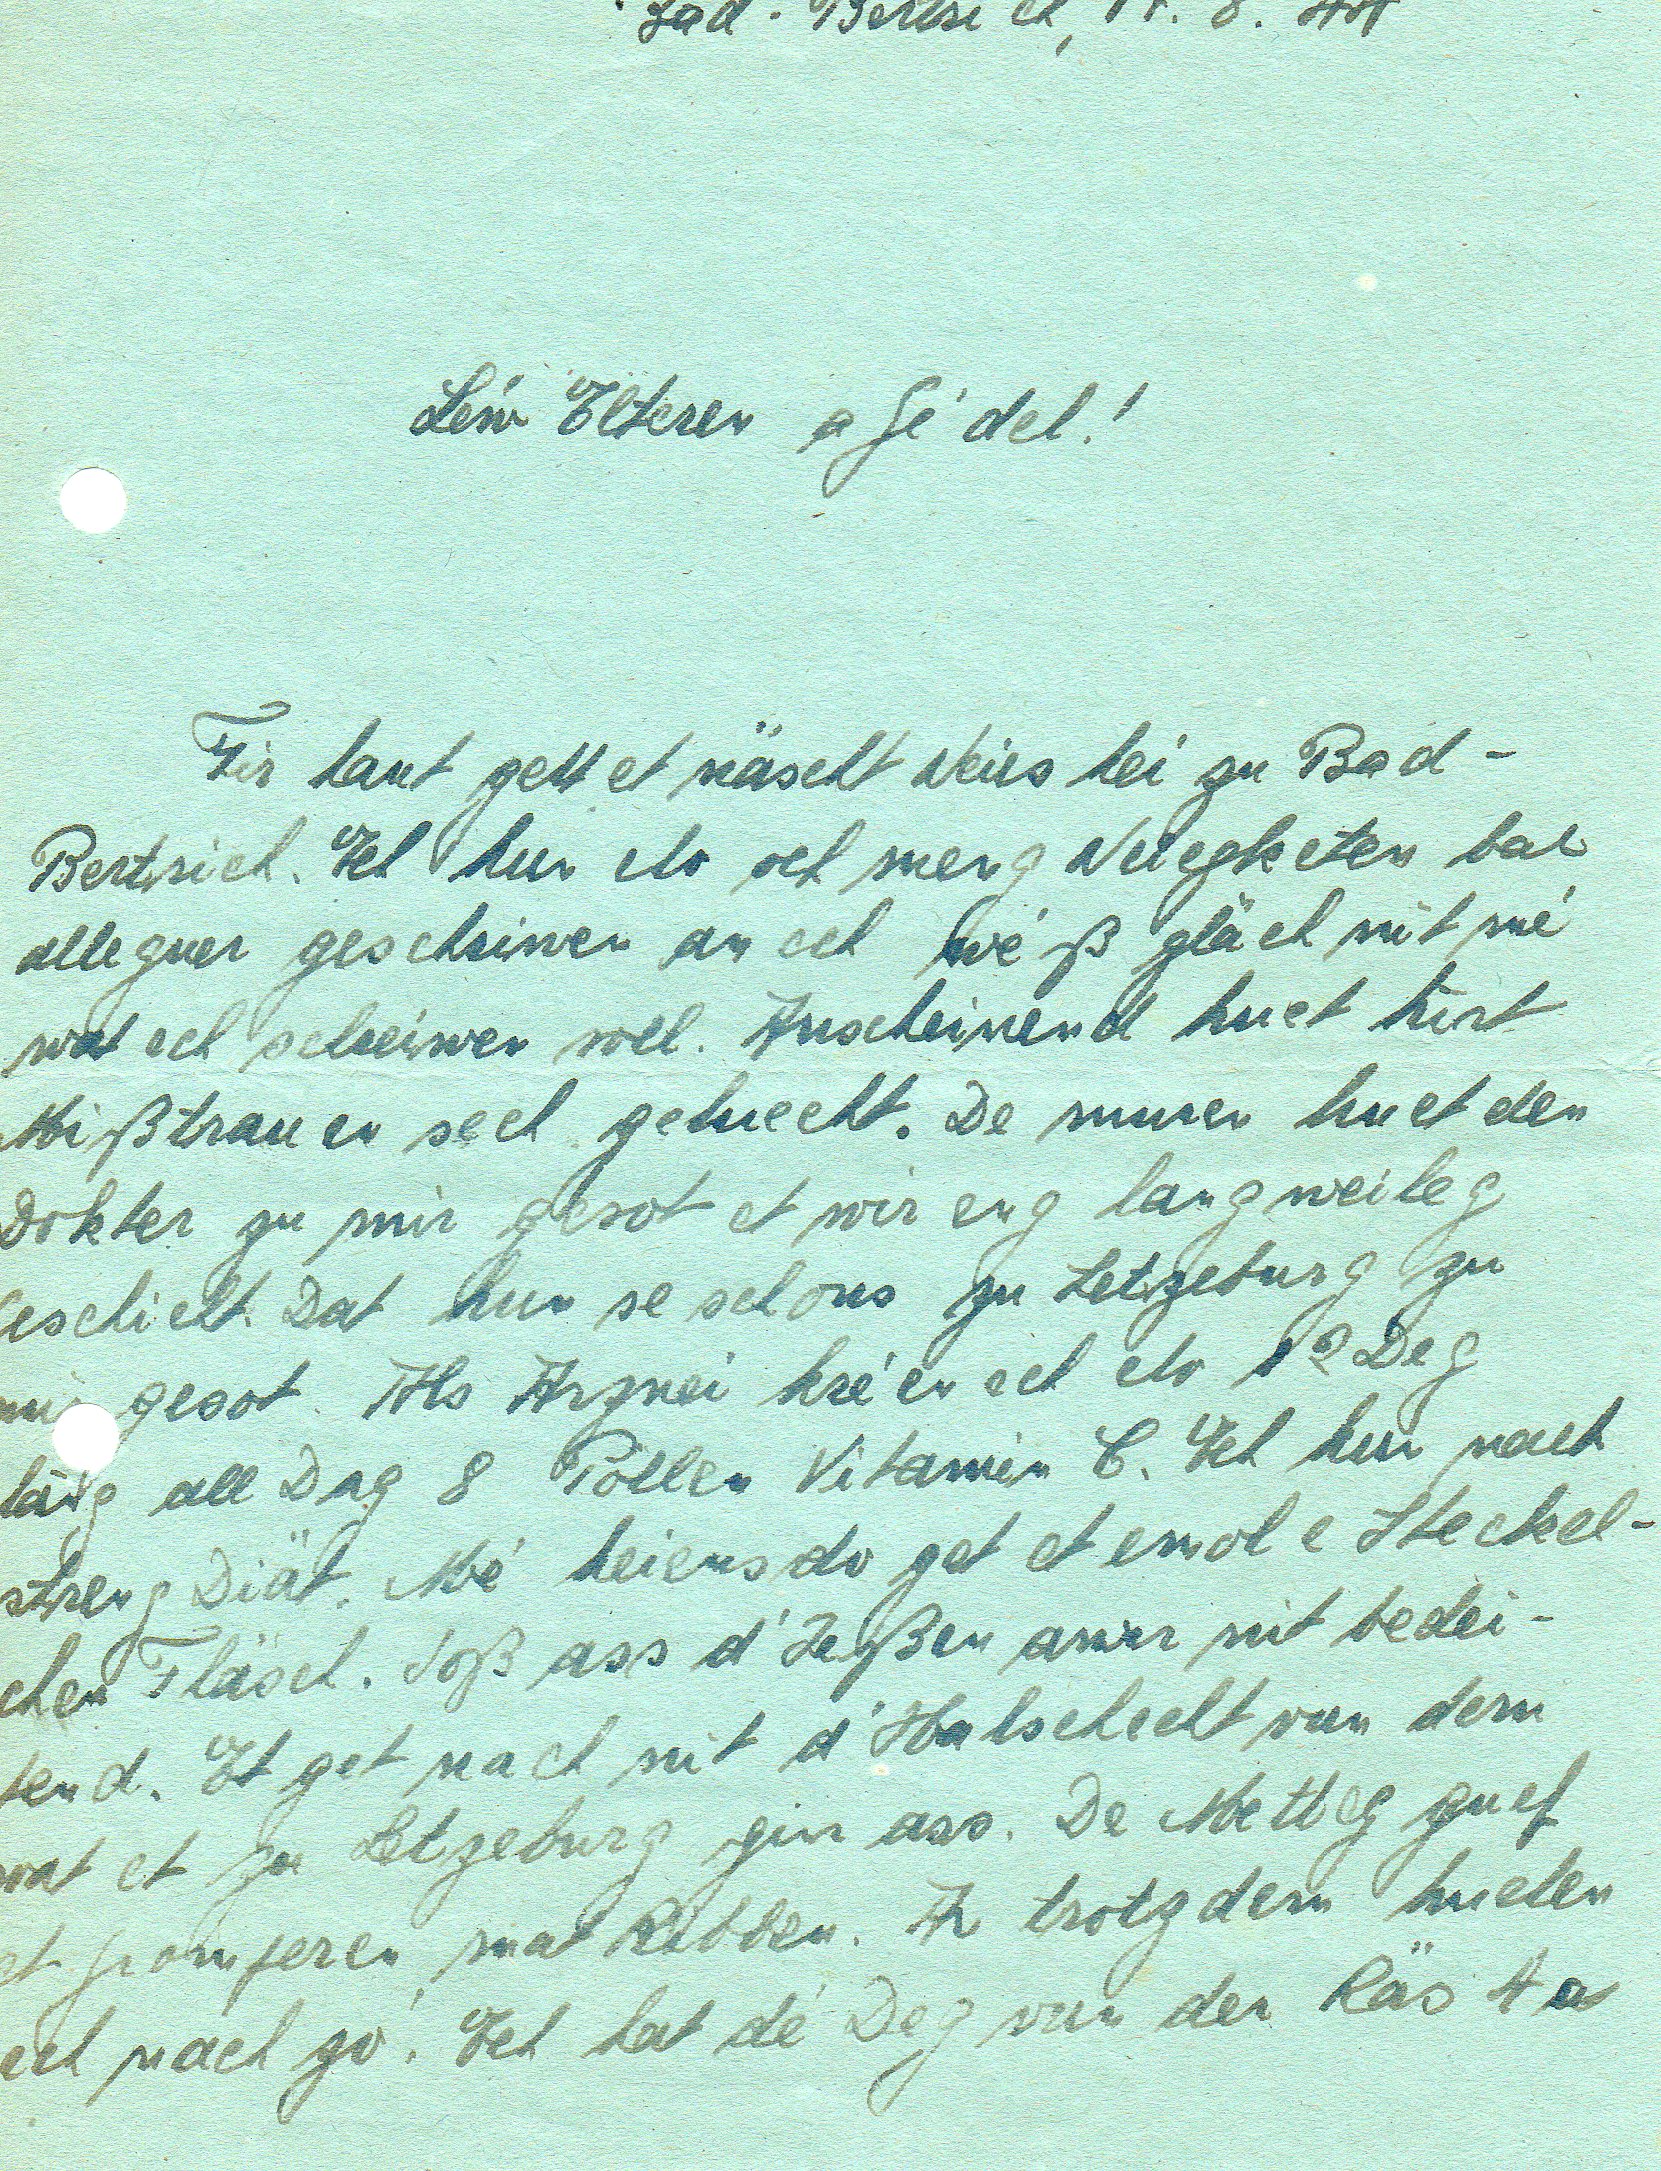 Bad-Bertrich, 17. 8. 44
Léiw Elteren a Gé'del!
Fir haut gett et näscht Neies hei zu Bad-
Bertrich. Ech hun elo och meng Neiegketen bal
alleguer geschriwen an ech wé'ß gläch nit mé
wat ech schreiwen soll. Anscheinend huet hirt
Mißtrauen sech geluecht. De muren huet den
Dokter zu mir gesot et wir eng langweileg
Geschicht. Dat hun se schons zu Letzeburg zu
mir gesot. Als Arznei kré'en ech elo 12 Deg
läng all Dag 8 Pöllen Vitamin C. Ech hun nach
streng Diät. Mé heiansdo get et emol e Steckel-
chen Fläsch. Soß ass d'Ießen awer nit bedei-
tend. Et get nach nit d'Halschecht vun dem
wat et zu Letzeburg gin ass. De Metteg guef
et Gromperen mat Ribben. An trotzdem huelen
ech nach zo'. Ech hat dé Deg vun der Räs 4 a